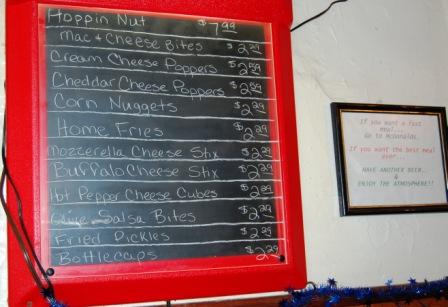 Hoppin Nut $7.99
Mac & Cheese Bites $2.29
Cream Cheese Poppers $2.59
Cheddar Cheese Poppers $2.59
Corn Nuggets $2.29
Home Fries $2.29
Mozzerella Cheese Stix $2.29
Buffalo Cheese Stix $2.29
Hot Pepper Cheese Cubes $2.29
Salsa Bites $2.29
Fried Pickles $2.29
Bottlecaps $2.29
If you want a fast
meal...
Go to McDonalds.
If you want the best meal
ever...
HAVE ANOTHER BEER...
&
ENJOY THE ATMOSPHERE!!